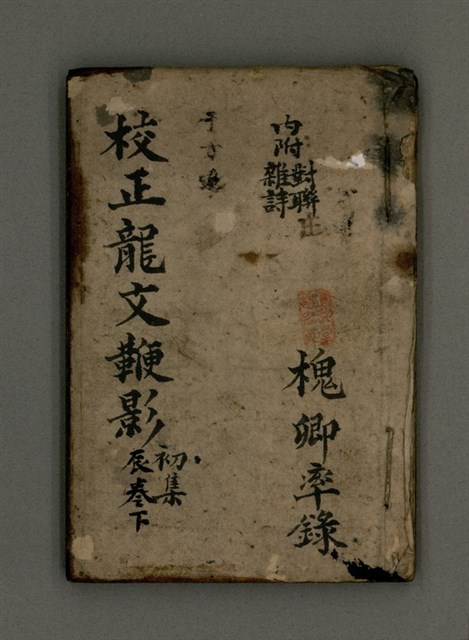 內附對聯
雜詩
槐卿率錄
校正龍文鞭影
初集
辰叁下